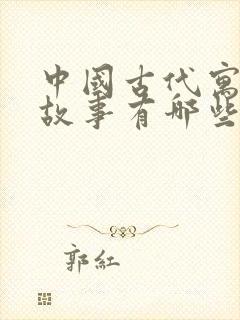 中國古代寓
故事有哪些
郭紅